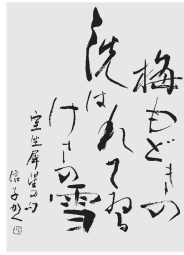 梅もどきの
洗はれてゐる
けさの雪
室生犀星の句
信子かく